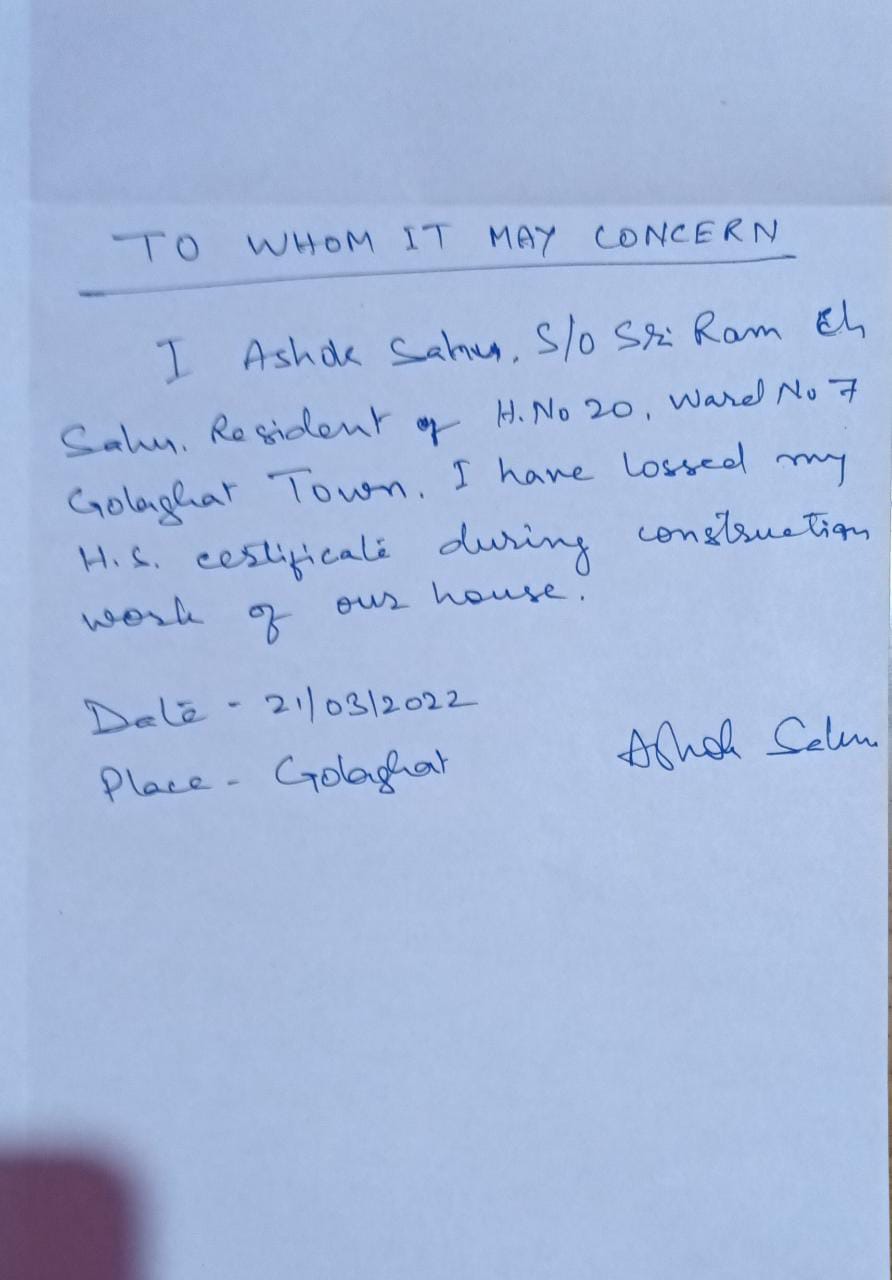 TO WHOM IT MAY CONCERN
I Ashok Sahu, S/o Sri Ram Ch
Sahu. Resident of H. No 20, Ward No 7
Golaghat Town. I have lossed my
H.S. certificate during construction
work of our house.
Date - 21/03/2022
Ashok Sahu
Place - Golaghat